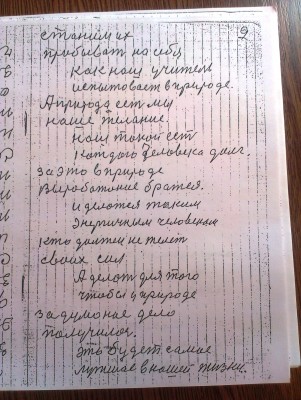 9
станим их
пробыват на себя
Как наш учитель
испытовает в природе.
А природа ест мы
наше желание.
Наш такой ест
Каждого Человека долг.
За это в природе
Выроботоние братся.
и делотся таким
Энергичным человеком
Кто должен не телит
своих сил
А делот для того
чтобы у природе
Задуманое дело
получилос.
Это будет самое
лутшае в нашей жизни.